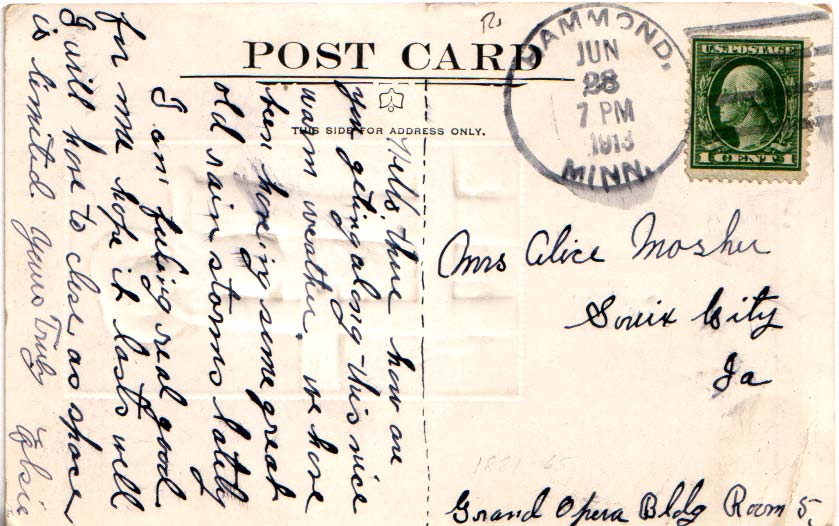 POST CARD
THIS SIDE FOR ADDRESS ONLY.
HAMMOND,
JUN
28
7 PM
1913
MINN.
U.S. POSTAGE
1 CENT 1
Hello there how are
you geting along this nice
warm weather. we have
ben having some great
old rain storms lately
I am feeling real good
for me hope it lasts well
I will have to close as space
is limited Yours Truly Elsie
Mrs Alice Mosher
Souix City
Ia
1881 65
Grand Opera Bldg Room 5.